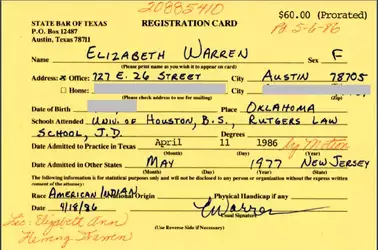 20885410
STATE BAR OF TEXAS
P.O. Box 12487
Austin, Texas 78711
REGISTRATION CARD
$60.00 (Prorated)
Pd 5-6-86
Name ELIZABETH WARREN Sex F
(Please print name as you wish it to appear on card)
Address: Office: 727 E. 26 STREET City AUSTIN 78705
Home: City
(Please check address to use for mailing) (Zip)
Date of Birth Place OKLAHOMA
Schools Attended UNIV. OF HOUSTON, B.S., RUTGERS LAW
SCHOOL, J.D. Degrees
Date Admitted to Practice in Texas April 11 1986 by Motion
(Month) (Day) (Year)
Date Admitted in Other States MAY 1977 NEW JERSEY
(Month) (Day) (Year) (State)
The following information is for statistical purposes only and will not be disclosed to any person or organization without the express written
consent of the attorney:
Race AMERICAN INDIAN National Origin Physical Handicap if any
Date 4/18/86 EWarren
Usual Signature
Lic: Elizabeth Ann
Herring Warren
(Use Reverse Side if Necessary)